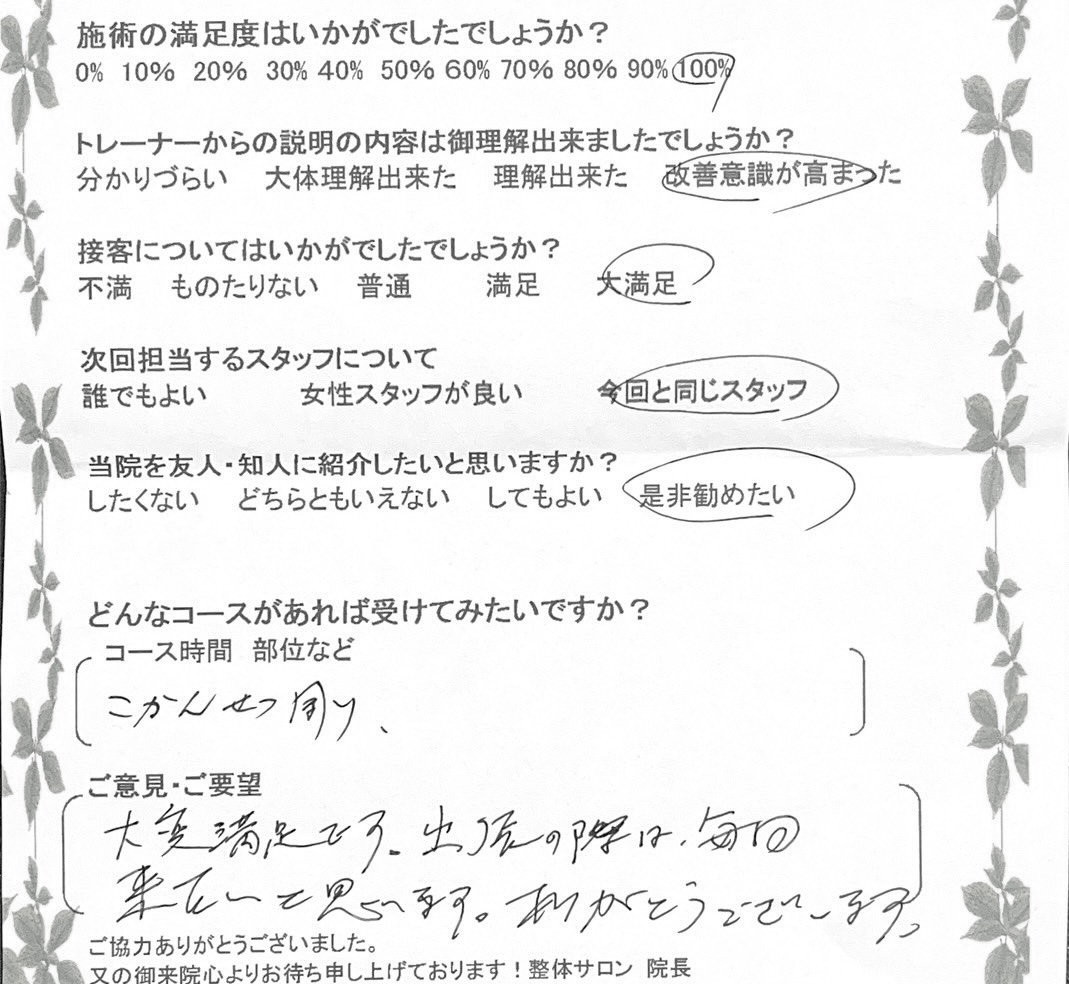 施術の満足度はいかがでしたでしょうか？
0% 10% 20% 30% 40% 50% 60% 70% 80% 90% 100%
トレーナーからの説明の内容は御理解出来ましたでしょうか？
分かりづらい 大体理解出来た 理解出来た 改善意識が高まった
接客についてはいかがでしたでしょうか？
不満 ものたりない 普通 満足 大満足
次回担当するスタッフについて
誰でもよい 女性スタッフが良い 今回と同じスタッフ
当院を友人・知人に紹介したいと思いますか？
したくない どちらともいえない してもよい 是非勧めたい
どんなコースがあれば受けてみたいですか？
コース時間 部位など
こかんせつ周り、
ご意見・ご要望
大変満足です。出張の際は、毎回
来たいと思います。ありがとうございます。
ご協力ありがとうございました。
又の御来院心よりお待ち申し上げております！整体サロン 院長